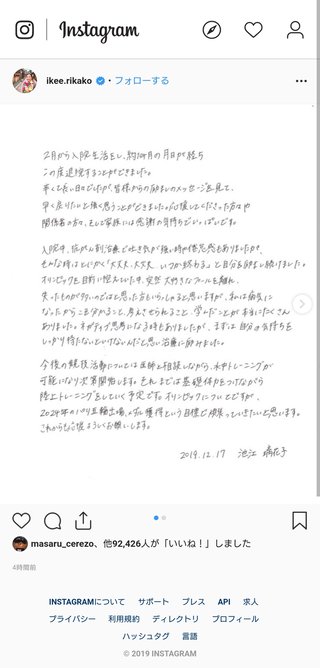 Instagram
ikee.rikako • フォローする
2月から入院生活をし、約10ヶ月の月日が経ち
この度退院することができました。
辛くて長い日々でしたが、皆様からの励ましのメッセージを見て、
早く戻りたいと強く思うことができました。応援してくださった方々や
関係者の方々、そして家族には感謝の気持ちでいっぱいです。
入院中、症状や副作用で吐き気が強い時や倦怠感もありましたが、
そんな時はとにかく「大丈夫、大丈夫 いつか終わる」と自分を励まし続けました。
オリンピックを目前に控えていた中、突然大好きなプールを離れ
失ったものが多いのではと思った方もいらっしゃると思いますが、私は病気に
なったからこそ分かること、考えさせられること、学んだことが本当にたくさん
ありました。ネガティブ思考になる時もありましたが、まずは自分の気持ちを
しっかり持たないといけないんだと思い治療に励みました。
今後の競技活動については医師と相談しながら、水中トレーニングが
可能になり次第開始します。それまでは基礎体力をつけながら
陸上トレーニングをしていく予定です。オリンピックについてですが、
2024年のパリ五輪出場、メダル獲得という目標で頑張っていきたいと思います。
これからも応援よろしくお願いします。
2019.12.17 池江 璃花子
masaru_cerezo、他92,426人が「いいね！」しました
4時間前
INSTAGRAMについて サポート プレス API 求人
プライバシー 利用規約 ディレクトリ プロフィール
ハッシュタグ 言語
© 2019 INSTAGRAM